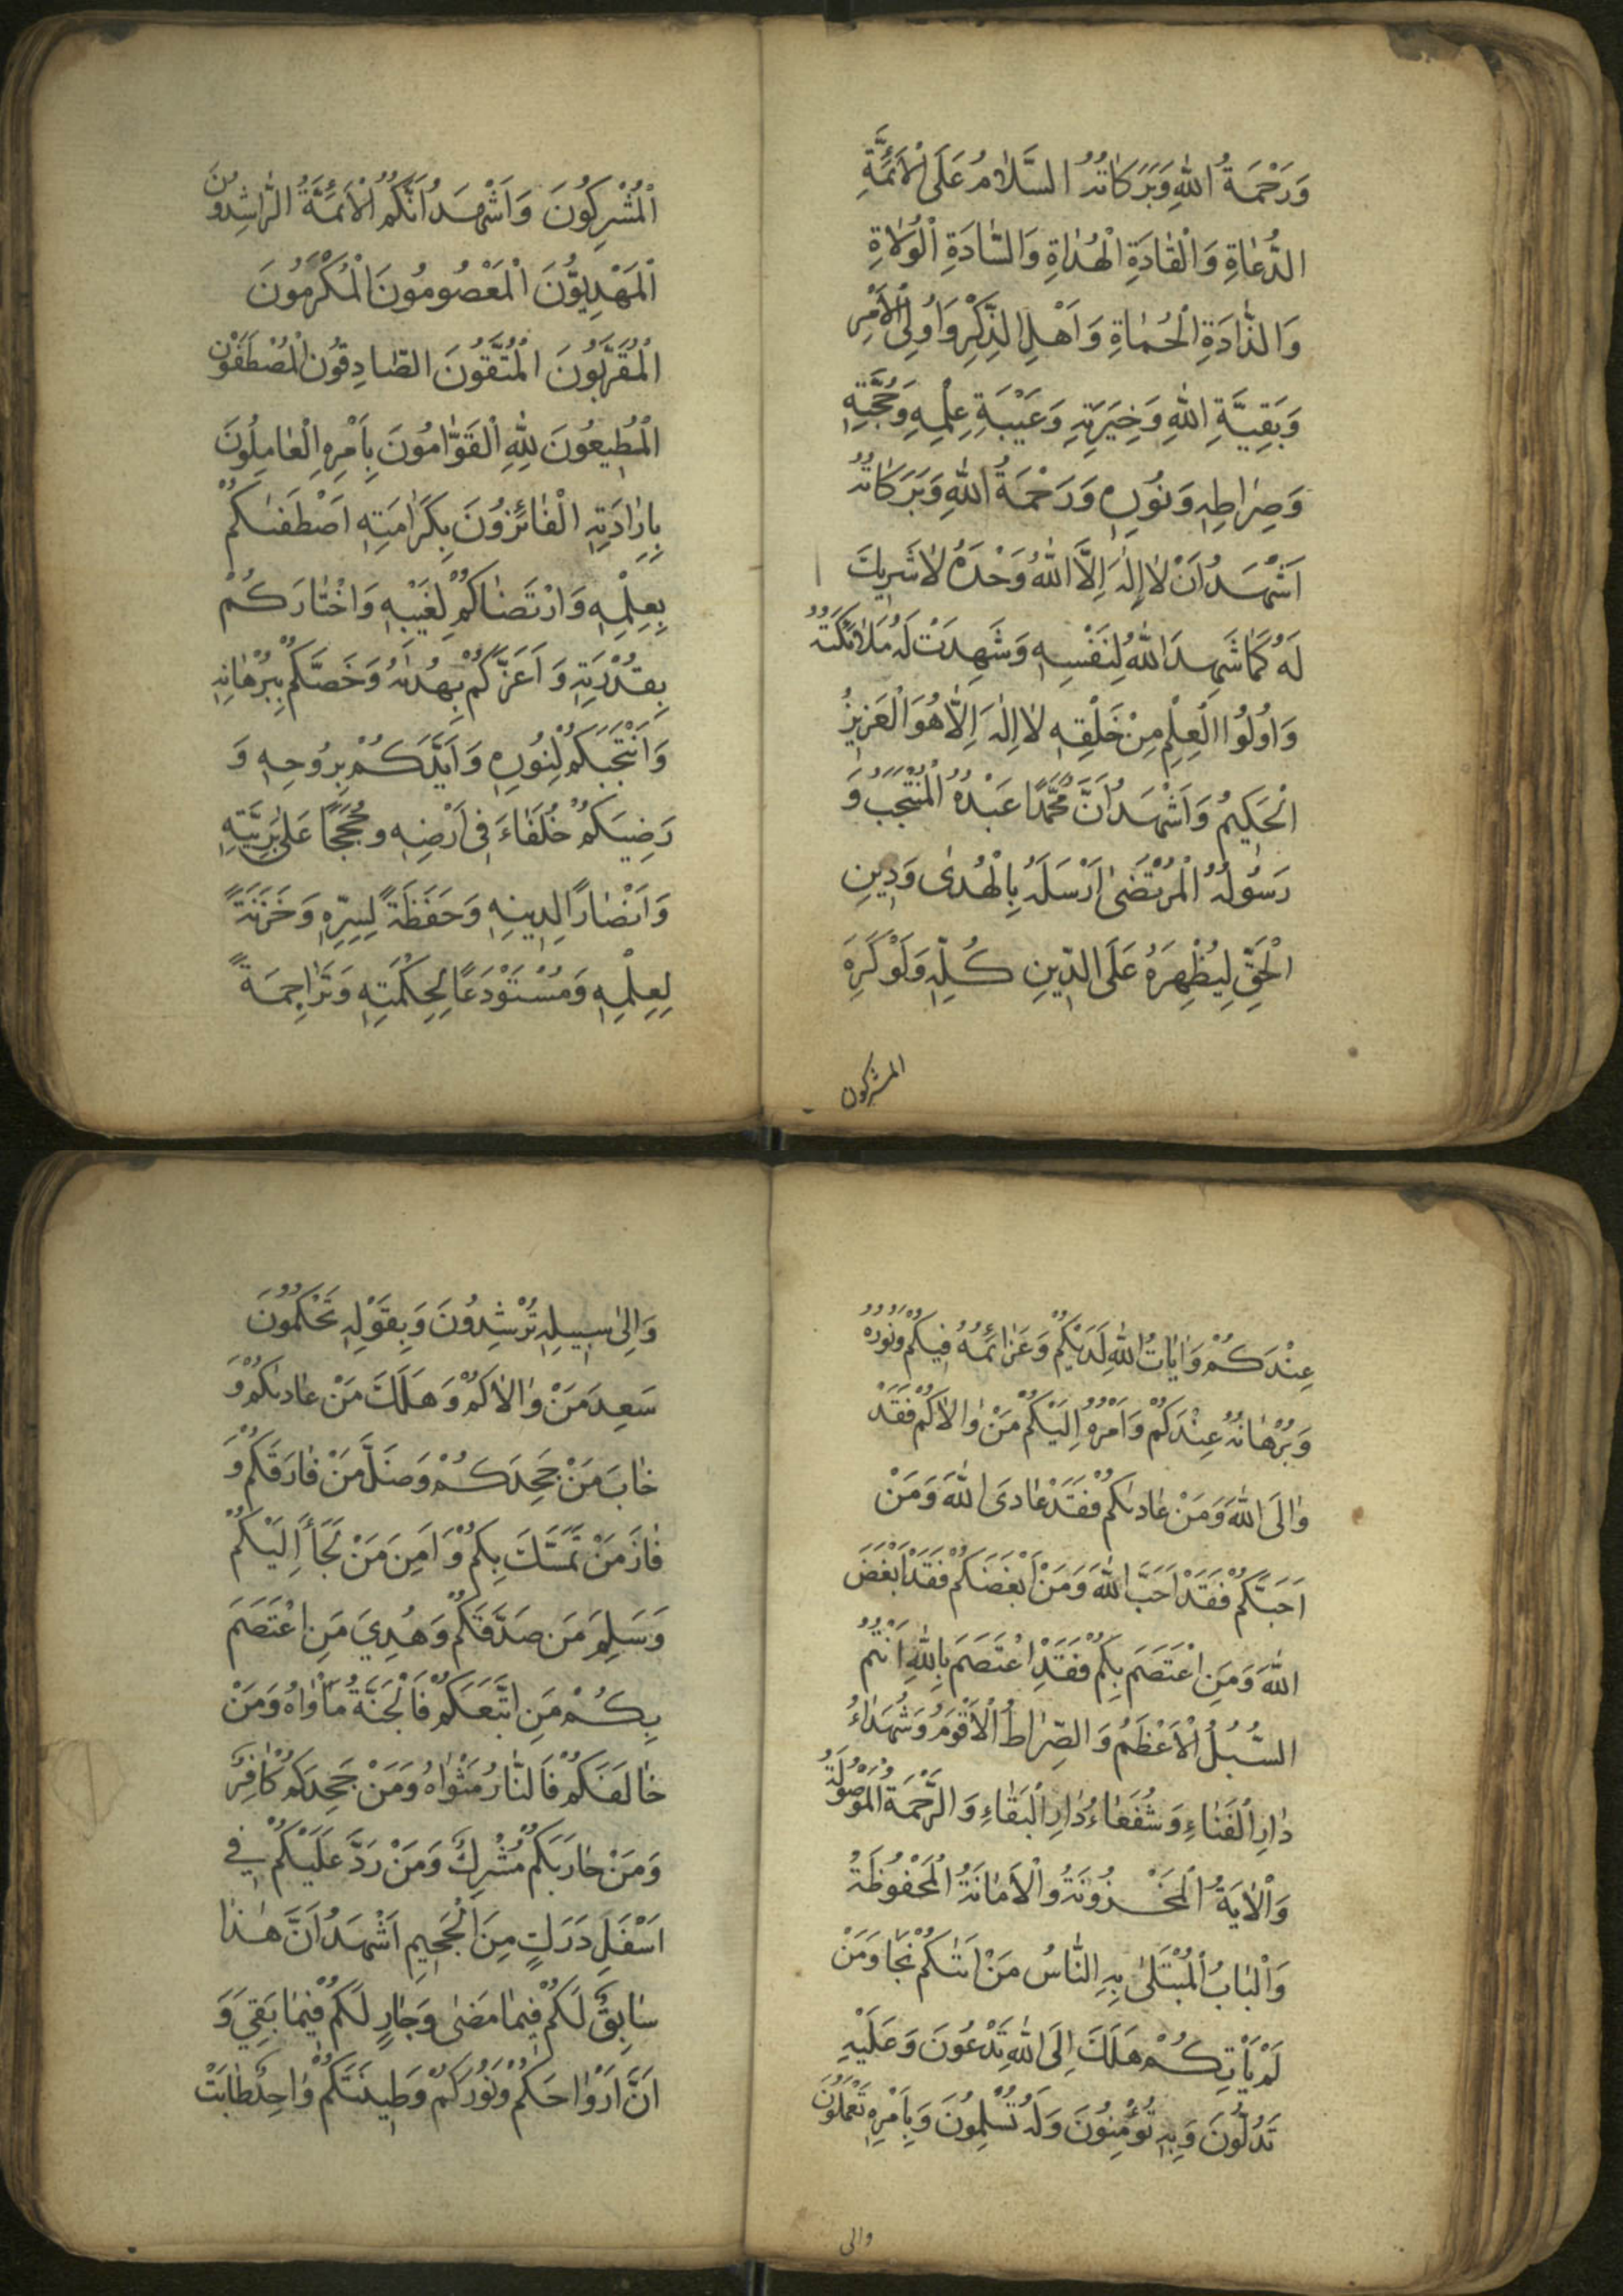 وَرَحْمَةُ اللّٰهِ وَبَرَكَاتُهُ السَّلَامُ عَلَى الْاَئِمَّةِ
الدُّعَاةِ وَالْقَادَةِ الْهُدَاةِ وَالسَّادَةِ الْوُلَاةِ
وَالذَّادَةِ الْحُمَاةِ وَاَهْلِ الذِّكْرِ وَاُولِى الْاَمْرِ
وَبَقِيَّةِ اللّٰهِ وَخِيَرَتِهِ وَعَيْبَةِ عِلْمِهِ وَحُجَّتِهِ
وَصِرَاطِهِ وَنُورِهِ وَرَحْمَةُ اللّٰهِ وَبَرَكَاتُهُ
اَشْهَدُ اَنْ لَا اِلٰهَ اِلَّا اللّٰهُ وَحْدَهُ لَا شَرِيكَ
لَهُ كَمَا شَهِدَ اللّٰهُ لِنَفْسِهِ وَشَهِدَتْ لَهُ مَلَائِكَتُهُ
وَاُولُوا الْعِلْمِ مِنْ خَلْقِهِ لَا اِلٰهَ اِلَّا هُوَ الْعَزِيزُ
الْحَكِيمُ وَاَشْهَدُ اَنَّ مُحَمَّدًا عَبْدُهُ الْمُنْتَجَبُ وَ
رَسُولُهُ الْمُرْتَضَىٰ اَرْسَلَهُ بِالْهُدَىٰ وَدِينِ
الْحَقِّ لِيُظْهِرَهُ عَلَى الدِّينِ كُلِّهِ وَلَوْ كَرِهَ
المشركون
الْمُشْرِكُونَ وَاَشْهَدُ اَنَّكُمُ الْاَئِمَّةُ الرَّاشِدُونَ
الْمَهْدِيُّونَ الْمَعْصُومُونَ الْمُكَرَّمُونَ
الْمُقَرَّبُونَ الْمُتَّقُونَ الصَّادِقُونَ الْمُصْطَفَوْنَ
الْمُطِيعُونَ لِلّٰهِ الْقَوَّامُونَ بِاَمْرِهِ الْعَامِلُونَ
بِاِرَادَتِهِ الْفَائِزُونَ بِكَرَامَتِهِ اصْطَفٰىكُمْ
بِعِلْمِهِ وَارْتَضَاكُمْ لِغَيْبِهِ وَاخْتَارَكُمْ
بِقُدْرَتِهِ وَاَعَزَّكُمْ بِهُدَاهُ وَخَصَّكُمْ بِبُرْهَانِهِ
وَانْتَجَبَكُمْ لِنُورِهِ وَاَيَّدَكُمْ بِرُوحِهِ وَ
رَضِيَكُمْ خُلَفَاءَ فِى اَرْضِهِ وَحُجَجًا عَلَىٰ بَرِيَّتِهِ
وَاَنْصَارًا لِدِينِهِ وَحَفَظَةً لِسِرِّهِ وَخَزَنَةً
لِعِلْمِهِ وَمُسْتَوْدَعًا لِحِكْمَتِهِ وَتَرَاجِمَةً
عِنْدَكُمْ وَاٰيَاتُ اللّٰهِ لَدَيْكُمْ وَعَزَائِمُهُ فِيكُمْ وَنُورُهُ
وَبُرْهَانُهُ عِنْدَكُمْ وَاَمْرُهُ اِلَيْكُمْ مَنْ وَالَاكُمْ فَقَدْ
وَالَى اللّٰهَ وَمَنْ عَادٰىكُمْ فَقَدْ عَادَى اللّٰهَ وَمَنْ
اَحَبَّكُمْ فَقَدْ اَحَبَّ اللّٰهَ وَمَنْ اَبْغَضَكُمْ فَقَدْ اَبْغَضَ
اللّٰهَ وَمَنِ اعْتَصَمَ بِكُمْ فَقَدِ اعْتَصَمَ بِاللّٰهِ اَنْتُمُ
السُّبُلُ الْاَعْظَمُ وَالصِّرَاطُ الْاَقْوَمُ وَشُهَدَاءُ
دَارِ الْفَنَاءِ وَشُفَعَاءُ دَارِ الْبَقَاءِ وَالرَّحْمَةُ الْمَوْصُولَةُ
وَالْاٰيَةُ الْمَخْزُونَةُ وَالْاَمَانَةُ الْمَحْفُوظَةُ
وَالْبَابُ الْمُبْتَلَىٰ بِهِ النَّاسُ مَنْ اَتٰىكُمْ نَجَا وَمَنْ
لَمْ يَاْتِكُمْ هَلَكَ اِلَى اللّٰهِ تَدْعُونَ وَعَلَيْهِ
تَدُلُّونَ وَبِهِ تُؤْمِنُونَ وَلَهُ تُسْلِمُونَ وَبِاَمْرِهِ تَعْمَلُونَ
والى
وَاِلَىٰ سَبِيلِهِ تُرْشِدُونَ وَبِقَوْلِهِ تَحْكُمُونَ
سَعِدَ مَنْ وَالَاكُمْ وَهَلَكَ مَنْ عَادٰىكُمْ وَ
خَابَ مَنْ جَحِدَكُمْ وَضَلَّ مَنْ فَارَقَكُمْ وَ
فَازَ مَنْ تَمَسَّكَ بِكُمْ وَاَمِنَ مَنْ لَجَاَ اِلَيْكُمْ
وَسَلِمَ مَن صَدَّقَكُمْ وَهُدِيَ مَنِ اعْتَصَمَ
بِكُمْ مَنِ اتَّبَعَكُمْ فَالْجَنَّةُ مَاْوَاهُ وَمَنْ
خَالَفَكُمْ فَالنَّارُ مَثْوَاهُ وَمَنْ جَحِدَكُمْ كَافِرٌ
وَمَنْ حَارَبَكُمْ مُشْرِكٌ وَمَنْ رَدَّ عَلَيْكُمْ فِي
اَسْفَلِ دَرَكٍ مِنَ الْجَحِيمِ اَشْهَدُ اَنَّ هٰذَا
سَابِقٌ لَكُمْ فِيمَا مَضَىٰ وَجَارٍ لَكُمْ فِيمَا بَقِيَ وَ
اَنَّ اَرْوَاحَكُمْ وَنُورَكُمْ وَطِينَتَكُمْ وَاحِدَةٌ طَابَتْ